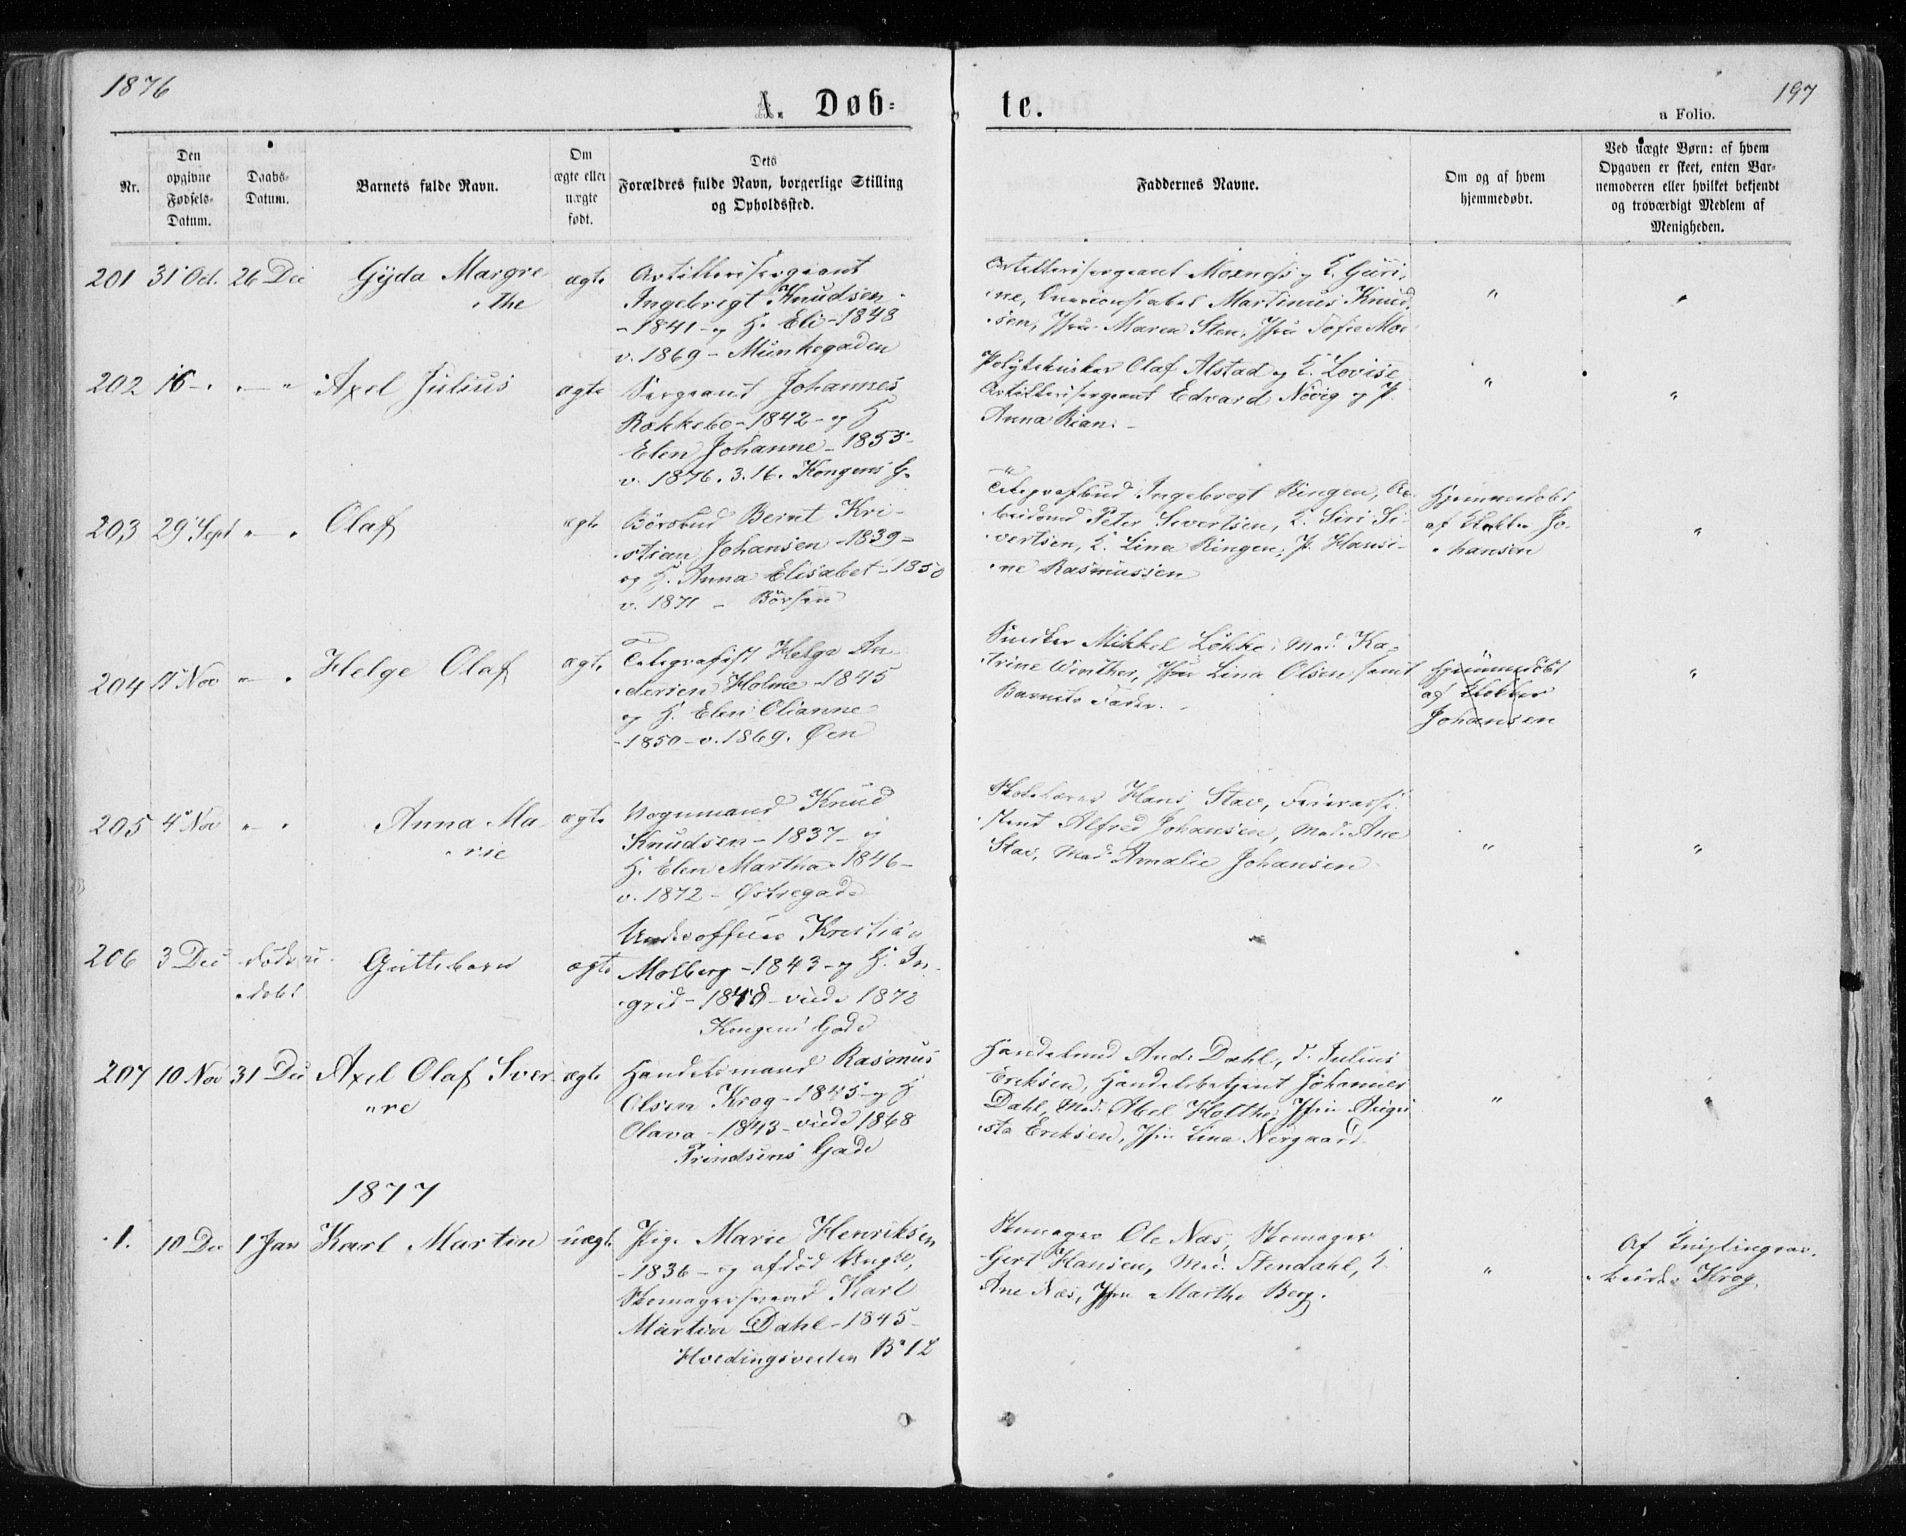 1876
197
A. Døb-
te.
a Folio.
Nr.
Den
opgivne
Fødsels-
Datum.
Daabs-
Datum.
Barnets fulde Navn.
Om
ægte eller
uægte
født.
Dets
Forældres fulde Navn, borgerlige Stilling
og Opholdssted.
Faddernes Navne.
Om og af hvem
hjemmedøbt.
Ved uægte Børn: af hvem
Opgaven er skeet, enten Bar-
nemoderen eller hvilket bekjendt
og troværdigt Medlem af
Menigheden.
201 31 Oct. 26 Dec Gyda Margre-
the
ægte
Artillerisergeant
Ingebrigt Knudsen
- 1841 - og H. Eli - 1848
v. 1869 - Munkegaden
Artillerisergeant Moxness og H. Guri-
ne, Martinus Knud-
sen, Jfru Maren Sten, Jfru Tofie Mox
"
202 16 - " - " Axel Julius
ægte
Sergeant Johannes
Rokkebo - 1842 - og H
Elen Johanne - 1853 -
v. 1876. 3. 16. Kongens G.
Polytekniker Olaf Alstad og H. Lovise
Artillerisergeant Edvard Növig og P.
Anna Rian. -
" "
203 29 Sept " - " Olaf
ægte
Börsbud Bernt Kri-
stian Johansen - 1839 -
og H. Anna Elisabet - 1850
v. 1871 - Börsen
Telegrafbud Ingebregt Ringen, Ar-
beidsmd Peter Sivertsen, H. Siri Si-
vertsen, H. Lina Ringen, P. Hansi-
ne Rasmussen
Hjemmedøbt
af Klokker Jo-
hansen
"
204 11 Nov " - " Helge Olaf
ægte
Telegrafist Helge An-
dersen Holme - 1845
og H. Elen Olianne
- 1850 - v. 1869. Øen
Snedker Mikkel Løkke, Mad. Ka-
trine Winther, Jfru Lina Olsen samt
Barnets Fader. -
Hjemmedøbt
af Klokker
Johansen
"
205 4 Nov " - " Anna Ma-
rie
ægte
Vognmand Knud
Knudsen - 1837 - og
H. Elen Martha - 1846 -
v. 1872 - Østregade
Skolelærer Hans Stav,
Alfred Johansen, Mad. Ane
Stav, Mad. Amalie Johansen
" "
206 3 Dec dødf. u-
døbt
Guttebarn
ægte
Underofficer Kristian
Molberg - 1843 - og H. In-
grid - 1848 - viede 1872
Kongens Gade
207 10 Nov 31 Dec Axel Olaf Sver-
re
ægte
Handelsmand Rasmus
Olsen Krog - 1845 - og H
Olava - 1843 - viede 1868
Prindsens Gade
Handelsmd And. Dahl, Julius
Eriksen, Handelsbetjent Johannes
Dahl, Mad. Abel Holthe, Jfru Augu-
sta Eriksen, Jfru Lina Nergaard.
" "
1877
1. 10 Dec 1 Jan Karl Martin
uægte
Pige Marie Henriksen
- 1836 - og afdød Ungk.,
Skomagersvend Karl
Martin Dahl - 1845 -
Hvedingsveiten B 12
Skomager Ole Næs, Skomager
Gert Hansen, Mad. Stendahl, H.
Ane Næs, Jfru Marthe Berg.
"
Af
Krog.